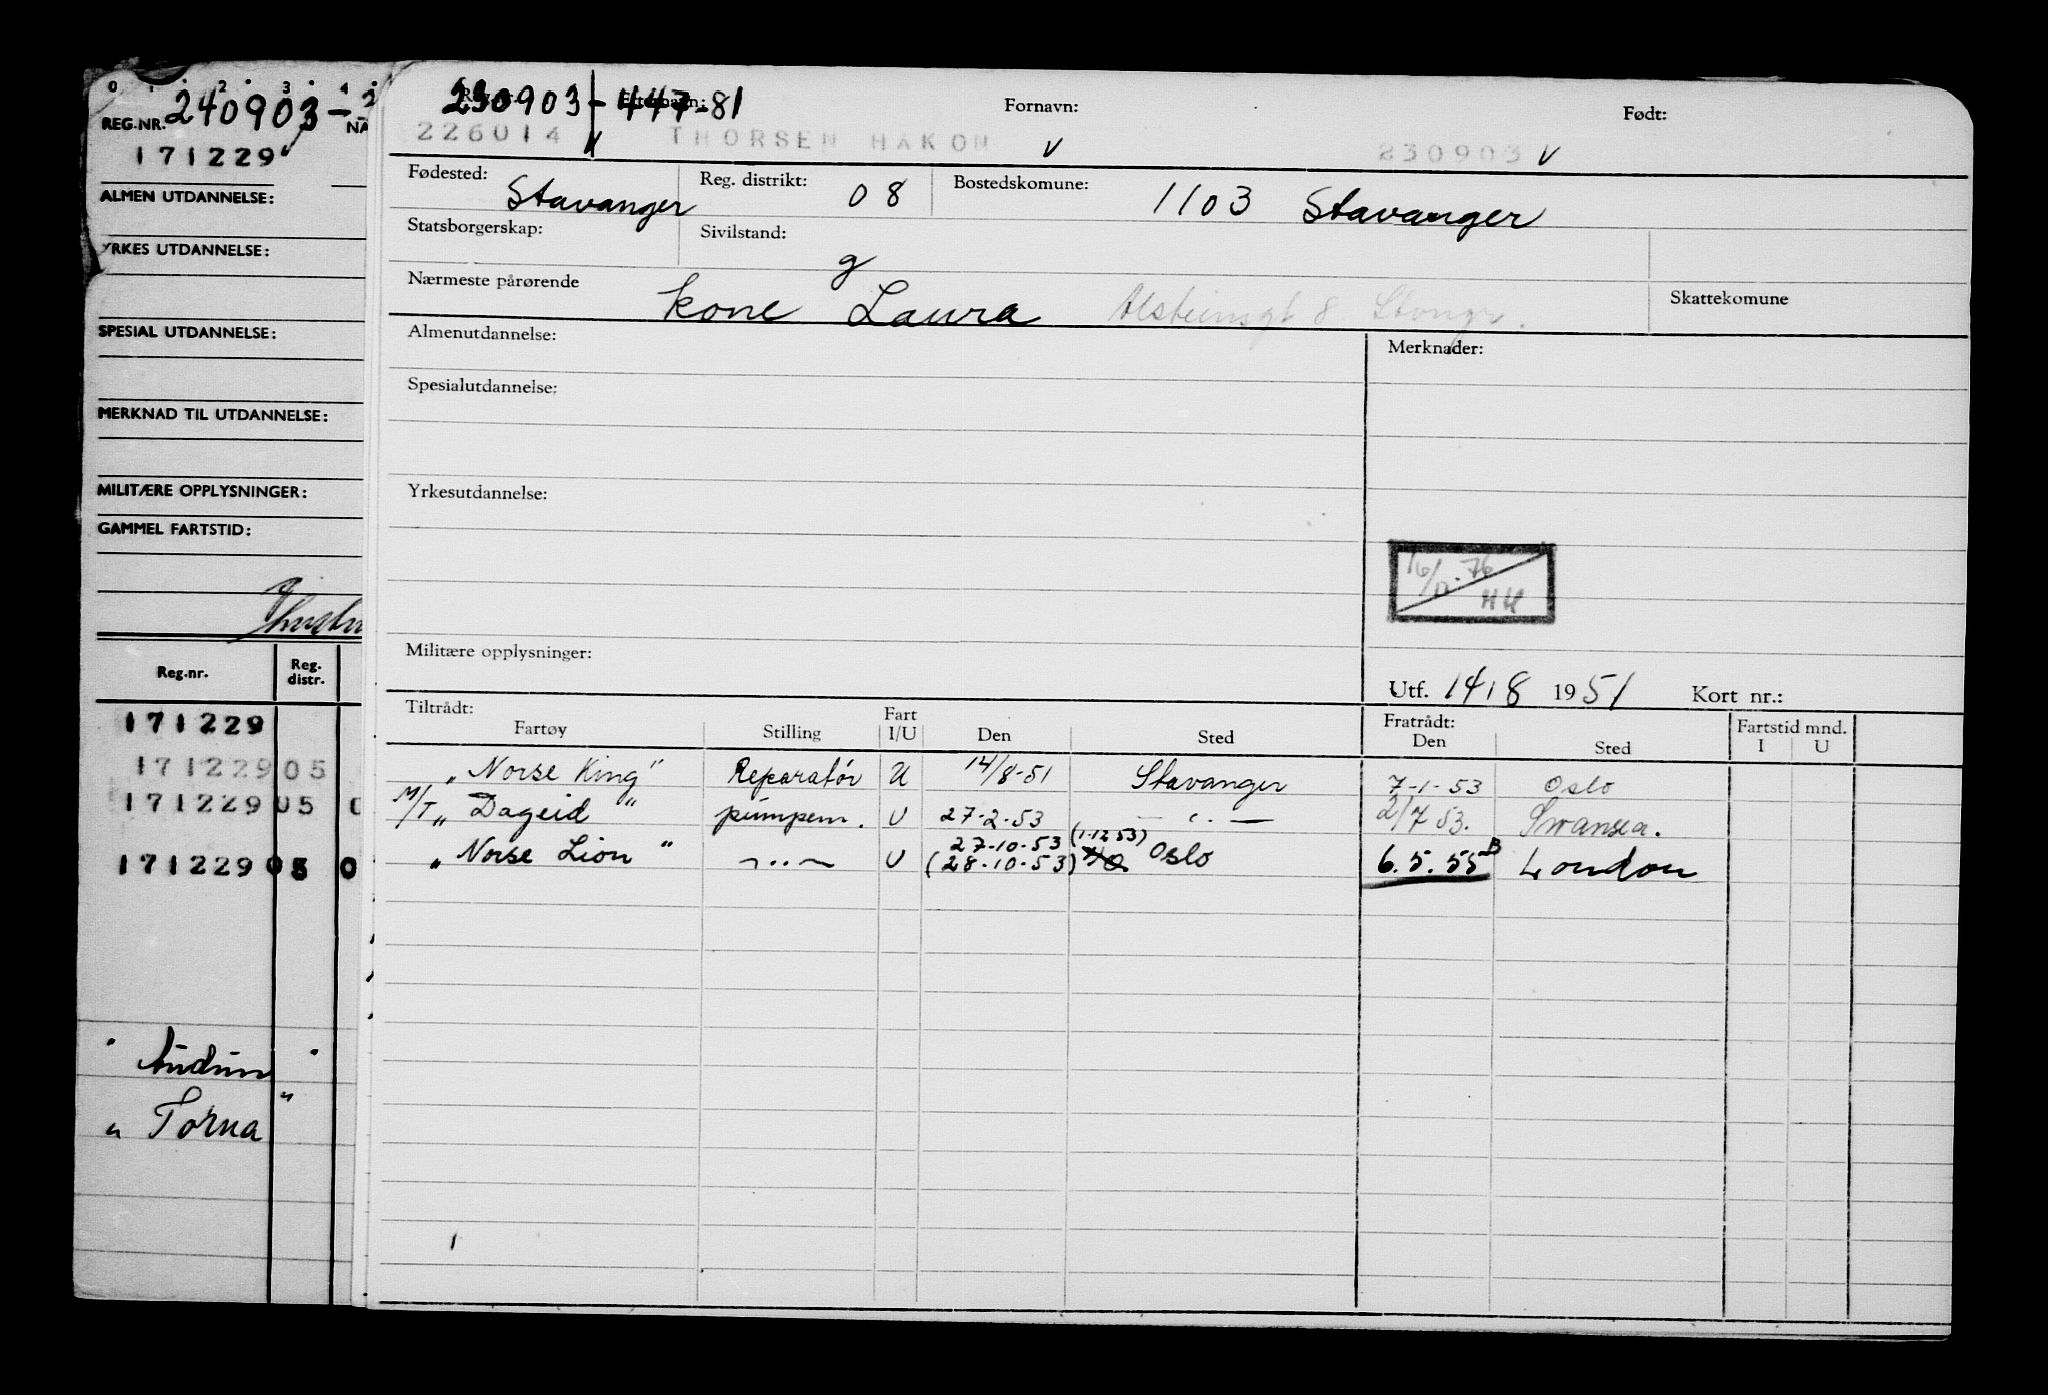 0 1 2 3 4
REG.NR. 240903-2 NA
171229
ALMEN UTDANNELSE:
YRKES UTDANNELSE:
SPESIAL UTDANNELSE:
MERKNAD TIL UTDANNELSE:
MILITÆRE OPPLYSNINGER:
GAMMEL FARTSTID:
Reg.nr. Reg. distr.
171229
171229 05
171229 05 0
171229 05 0
" Audun "
" Torna "
230903-447-81 Fornavn: Født:
226014 THORSEN HAKON V 230903 V
Fødested: Stavanger Reg. distrikt: 08 Bostedskomune: 1103 Stavanger
Statsborgerskap: Sivilstand: g
Nærmeste pårørende kone Laura Alsteinsgt 8 Stvngr. Skattekomune
Almenutdannelse: Merknader:
Spesialutdannelse:
Yrkesutdannelse:
16/12.76
HH
Militære opplysninger:
Utf. 14/8 1951 Kort nr.:
Tiltrådt: Fratrådt: Fartstid mnd.
Fartøy Stilling Fart I/U Den Sted Den Sted I U
"Norse King" Reparatør U 14/8-51 Stavanger 7-1-53 Oslo
M/T "Dageid" pumpem. U 27-2-53 — " — 2/7 53. Swansea.
"Norse Lion" — " — U 27-10-53 (28-10-53) (1-12 53) Oslo 6.5.55 B London